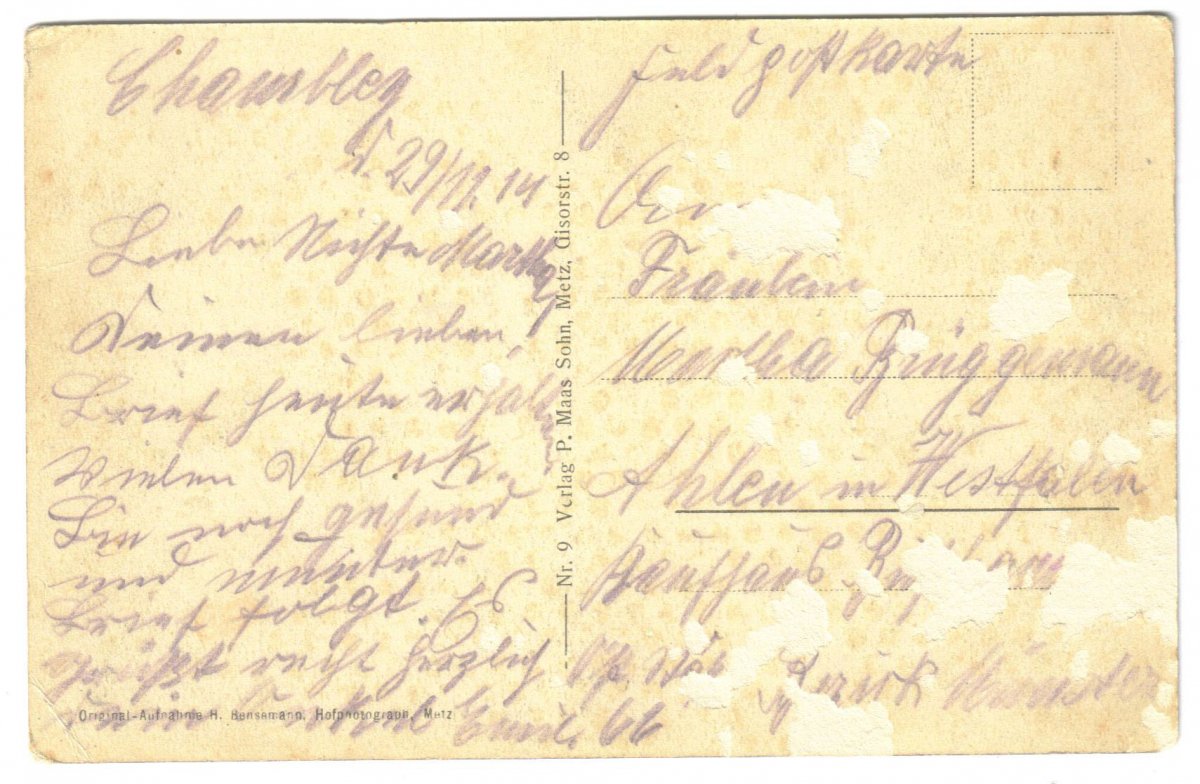 Chambley
d. 29/11. 14
Liebe Nichte Martha
Deinen lieben
Brief heute erhalten
Vielen Dank.
Bin noch gesund
und munter.
Brief folgt Es
grüßt recht herzlich
Dein Onkel Emil.
Original-Aufnahme H. Bensemann, Hofphotograph, Metz
Nr. 9 Verlag P. Maas Sohn, Metz, Gisorstr. 8
Feldpostkarte
An
Fräulein
Martha Brüggemann
Ahlen in Westfalen
Kaufhaus
Bezirk Münster